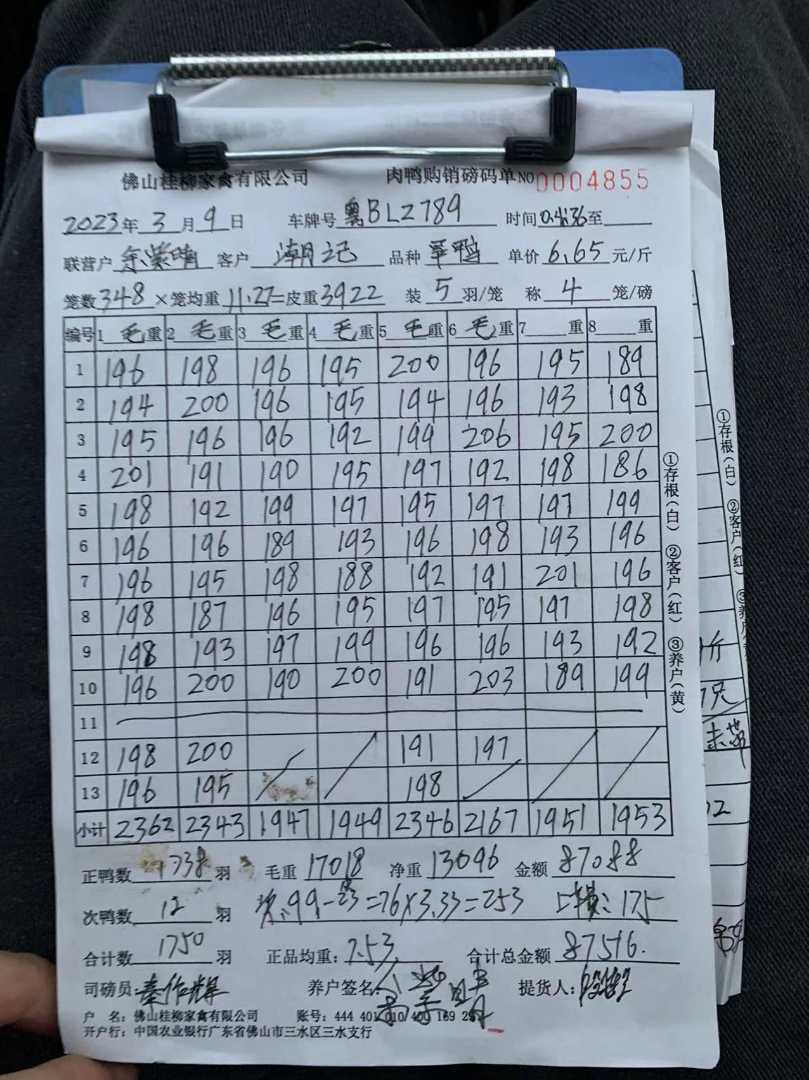 佛山桂柳家禽有限公司 肉鸭购销磅码单 NO 0004855
2023年 3 月 9 日 车牌号 粤BLZ789 时间 至
联营户 余紫晴 客户 潮记 品种 单价 6.65 元/斤
笼数 348 × 笼均重 11.27 = 皮重 3922 装 5 羽/笼 称 4 笼/磅
编号 1 毛重 2 毛重 3 毛重 4 毛重 5 毛重 6 毛重 7 重 8 重
1 196 198 196 195 200 196 195 189
2 194 200 196 195 194 196 193 198
3 195 196 196 192 199 206 195 200
4 201 191 190 195 197 192 198 186
5 198 192 199 197 195 197 197 199
6 196 196 189 193 196 198 193 196
7 196 195 198 188 192 191 201 196
8 198 187 196 195 197 195 197 198
9 198 193 197 199 196 196 193 192
10 196 200 190 200 191 203 189 199
11
12 198 200 191 197
13 196 195 198
小计 2362 2343 1947 1949 2346 2167 1951 1953
正鸭数 1738 羽 毛重 17018 净重 13096 金额 87088
次鸭数 12 羽 次:99-23=76×3.33=253 175
合计数 1750 羽 正品均重: 7.53 合计总金额 87516.
司磅员: 养户签名: 提货人:
户 名: 佛山桂柳家禽有限公司 账号: 444 401 010 400 169 2
开户行: 中国农业银行广东省佛山市三水区三水支行
①存根(白) ②客户(红) ③养户(黄)
①存根(白) ②客户(红)